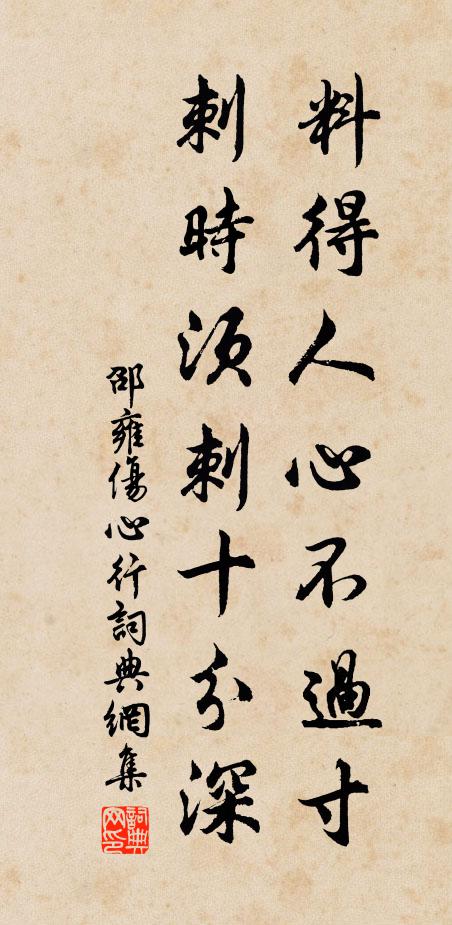 料得人心不過寸
刺時須刺十分深
邵雍傷心行詞典網集
詞典網印